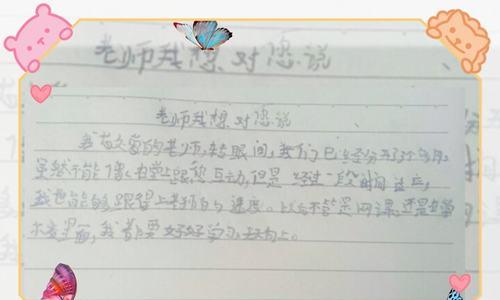 老师我想对您说
老师我想对您说
我敬爱的老师，转眼间，我们已经分开了个多月。
虽然不能像在学上跟您互动，但是经过一段时间适应，
我也能够跟得上老师的速度。以后不管是网课还是
里面，我都要好好学习，天天向上。